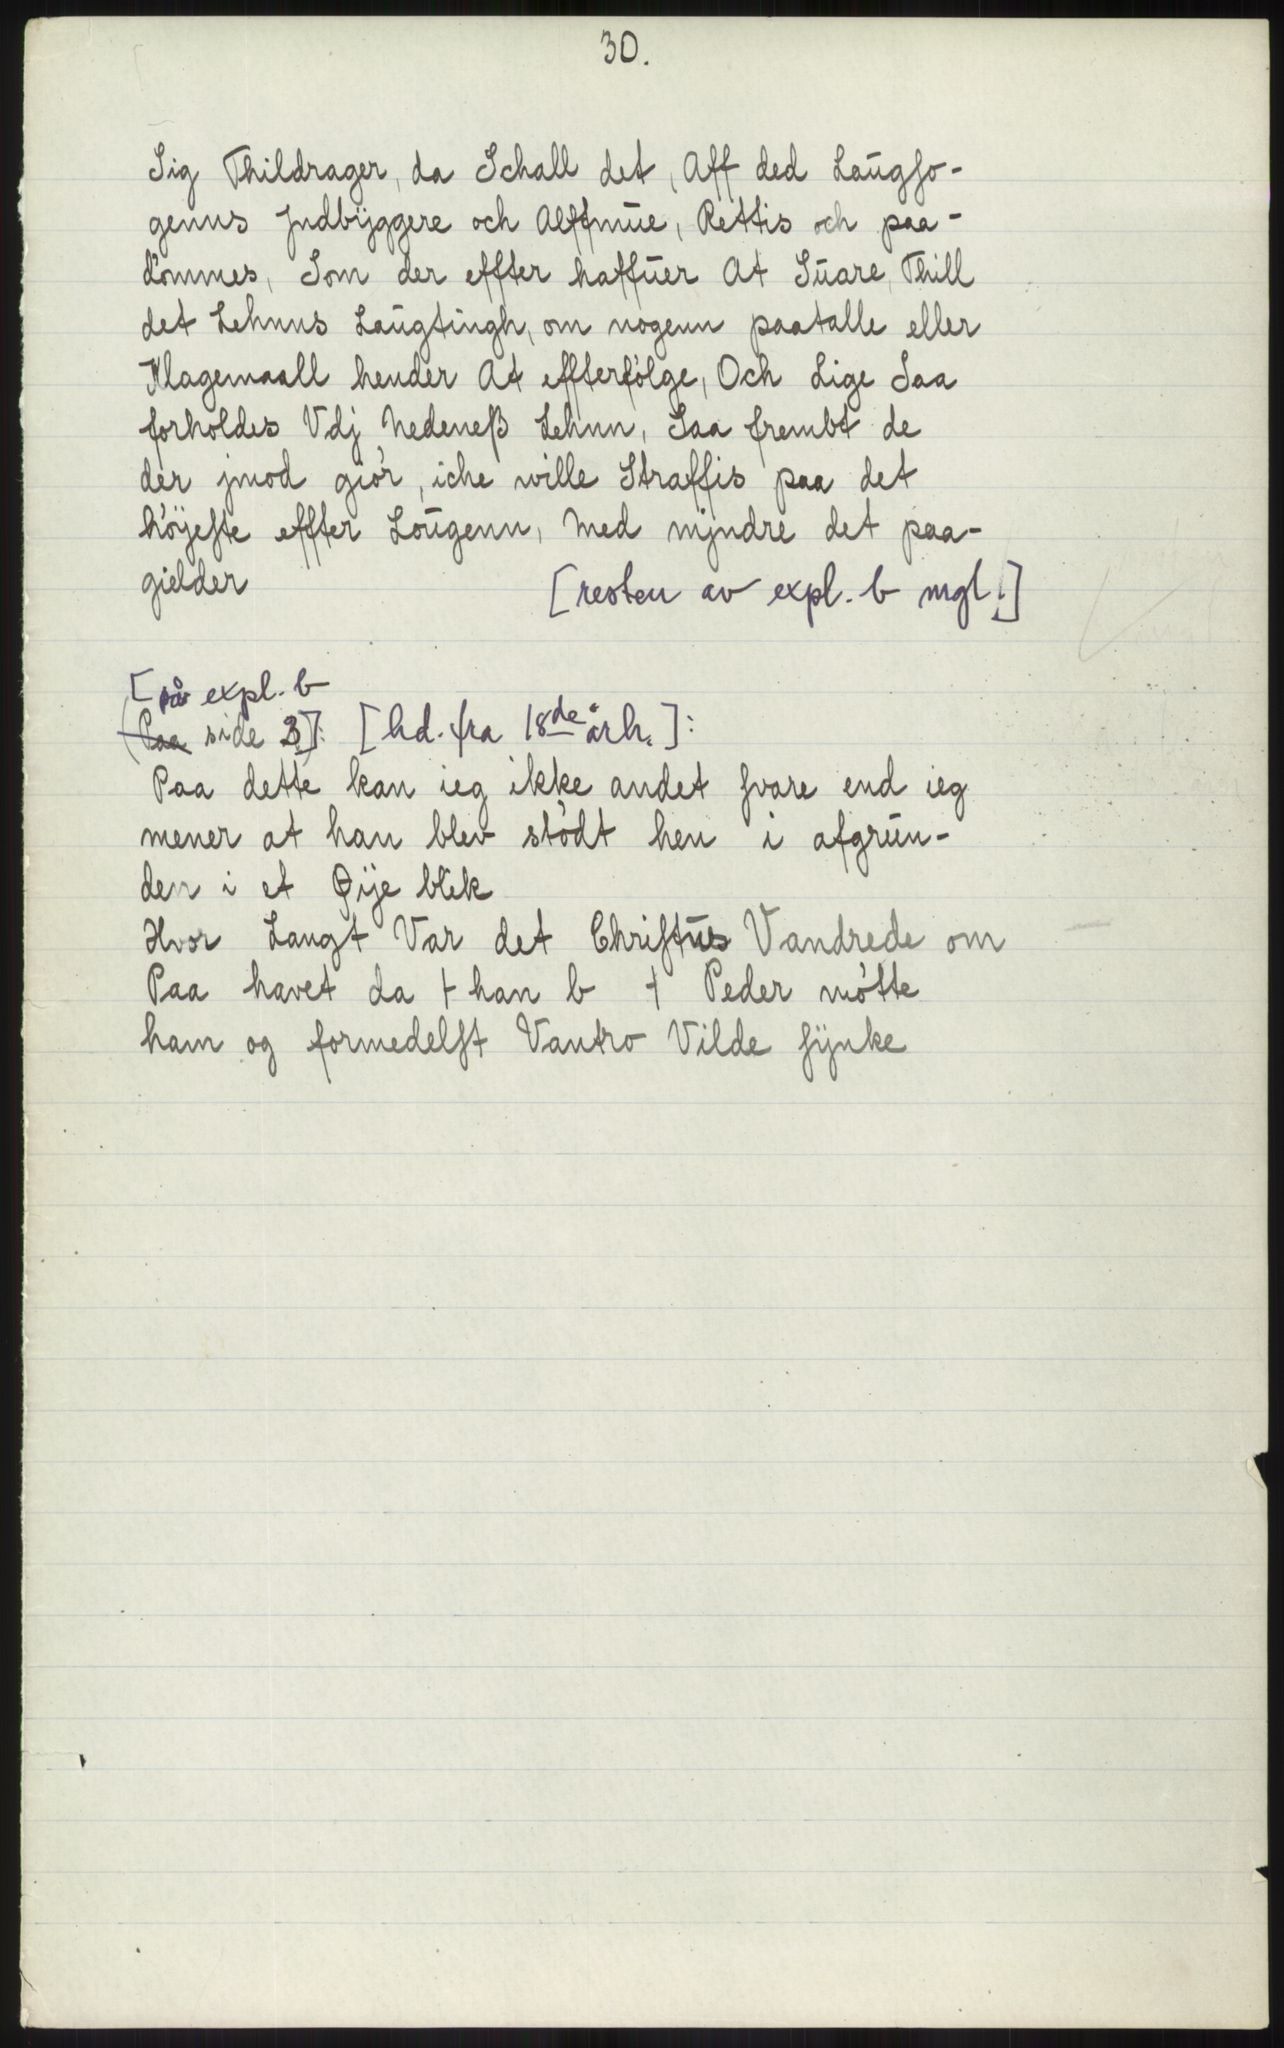 30.
Sig Thildrager, da Schall det, Aff ded Laugſo-
genns Jndbÿggere och Alffmue, Rettis och paa-
dömmes, Som der effter haffuer At Suare, Thill
det Lehnns Laugtingh, om nogenn paatalle eller
Klagemaall hender At effterfölge, Och Lige Saa
forholdes Vdj Nedeneß Lehnn, Saa frembt de
der jmod giör, iche wille Straffis paa det
höÿeſte effter Lougenn, Med mjndre det paa-
gielder
[resten av expl. b mgl.]
[på expl. b
(Paa side 3]: [hd. fra 18de årh.]:
Paa dette kan ieg ikke andet ſvare end ieg
mener at han blev stödt hen i afgrun-
den i et Øije blek
Hvor Langt Var det Chriſtus Vandrede om
Paa havet da + han b + Peder mötte
ham og formedelſt Vantro Vilde ſÿnke